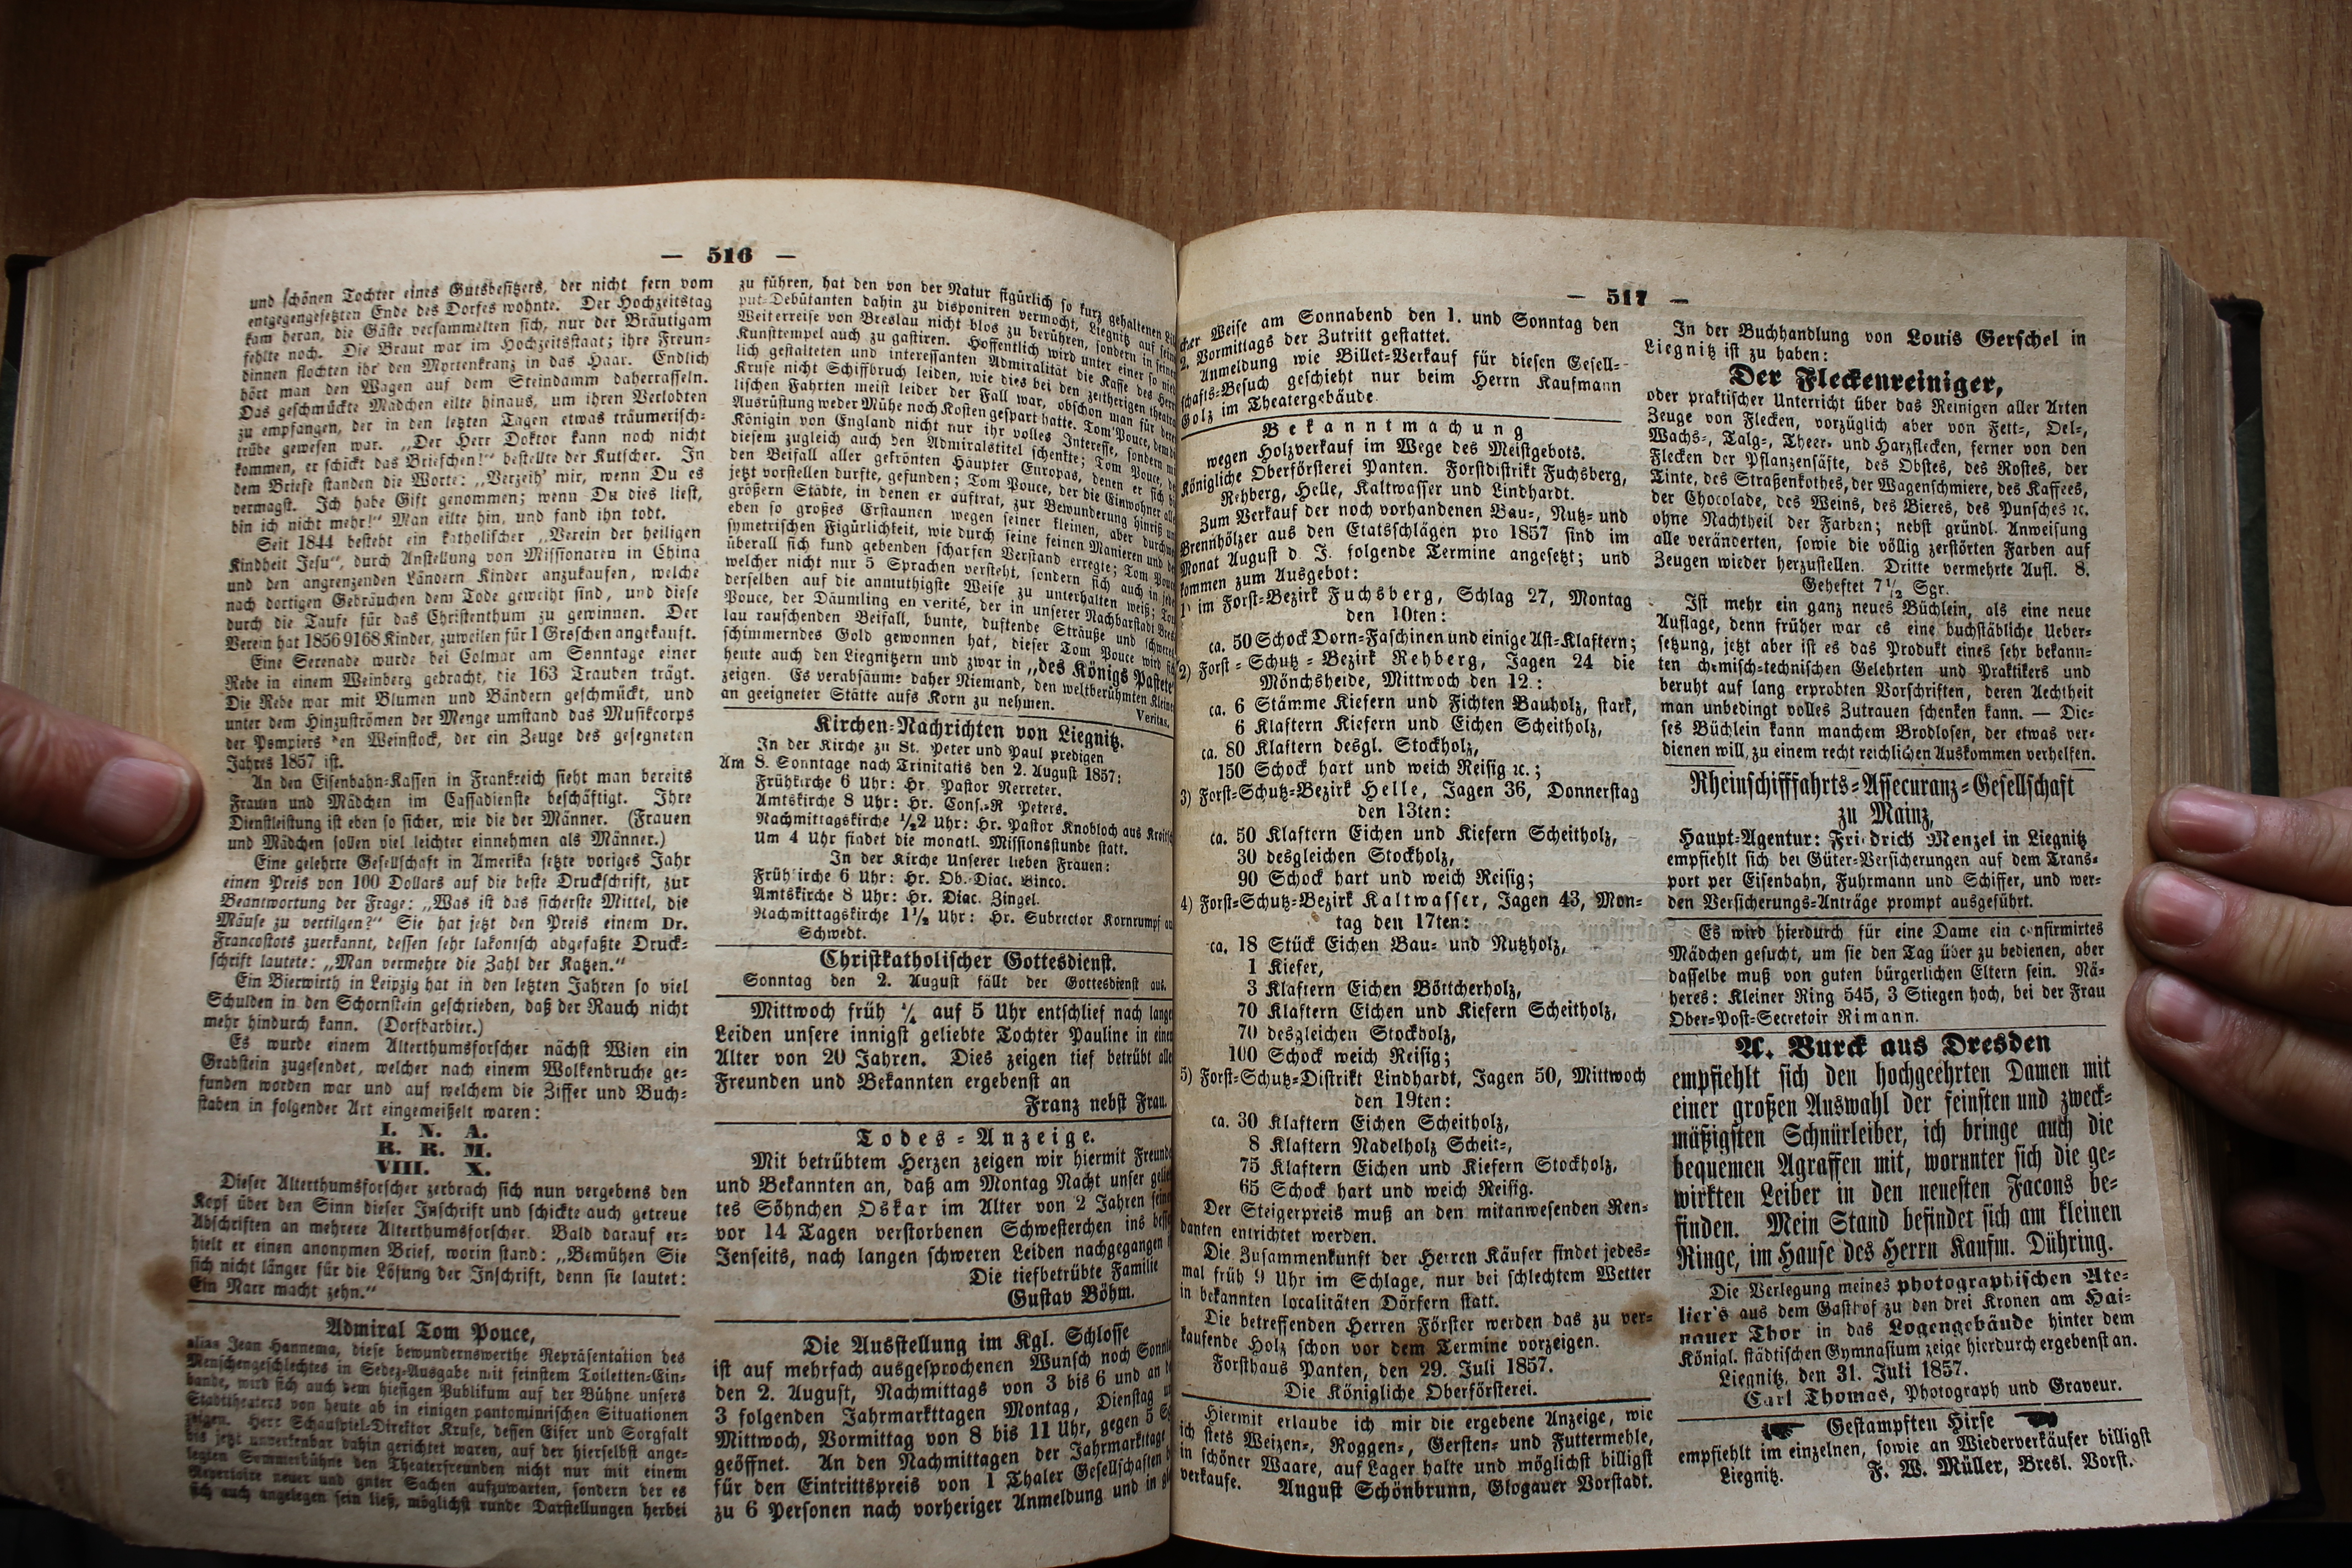 — 516 —
und schönen Tochter eines Gutsbesitzers, der nicht fern vom
entgegengesetzten Ende des Dorfes wohnte. Der Hochzeitstag
kam heran, die Gäste versammelten sich, nur der Bräutigam
fehlte noch. Die Braut war im Hochzeitsstaat; ihre Freun-
dinnen flochten ihr den Myrtenkranz in das Haar. Endlich
hört man den Wagen auf dem Steindamm daherrasseln.
Das geschmückte Mädchen eilte hinaus, um ihren Verlobten
zu empfangen, der in den letzten Tagen etwas träumerisch-
trübe gewesen war. „Der Herr Doktor kann noch nicht
kommen, er schickt das Briefchen!“ bestellte der Kutscher. In
dem Briefe standen die Worte: „Verzeih' mir, wenn Du es
vermagst. Ich habe Gift genommen; wenn Du dies liest,
bin ich nicht mehr!“ Man eilte hin, und fand ihn todt.
Seit 1844 besteht ein katholischer „Verein der heiligen
Kindheit Jesu“, durch Anstellung von Missionaren in China
und den angrenzenden Ländern Kinder anzukaufen, welche
nach dortigen Gebräuchen dem Tode geweiht sind, und diese
durch die Taufe für das Christenthum zu gewinnen. Der
Verein hat 1856 9168 Kinder, zuweilen für 1 Groschen angekauft.
Eine Serenade wurde bei Colmar am Sonntage einer
Rebe in einem Weinberg gebracht, die 163 Trauben trägt.
Die Rebe war mit Blumen und Bändern geschmückt, und
unter dem Hinzuströmen der Menge umstand das Musikcorps
der Pompiers den Weinstock, der ein Zeuge des gesegneten
Jahres 1857 ist.
An den Eisenbahn-Kassen in Frankreich sieht man bereits
Frauen und Mädchen im Cassadienste beschäftigt. Ihre
Dienstleistung ist eben so sicher, wie die der Männer. (Frauen
und Mädchen sollen viel leichter einnehmen als Männer.)
Eine gelehrte Gesellschaft in Amerika setzte voriges Jahr
einen Preis von 100 Dollars auf die beste Druckschrift, zur
Beantwortung der Frage: „Was ist das sicherste Mittel, die
Mäuse zu vertilgen?“ Sie hat jetzt den Preis einem Dr.
Francostots zuerkannt, dessen sehr lakonisch abgefaßte Druck-
schrift lautete: „Man vermehre die Zahl der Katzen.“
Ein Bierwirth in Leipzig hat in den letzten Jahren so viel
Schulden in den Schornstein geschrieben, daß der Rauch nicht
mehr hindurch kann. (Dorfbarbier.)
Es wurde einem Alterthumsforscher nächst Wien ein
Grabstein zugesendet, welcher nach einem Wolkenbruche ge-
funden worden war und auf welchem die Ziffer und Buch-
staben in folgender Art eingemeißelt waren:
I. N. A.
R. R. M.
VIII. X.
Dieser Alterthumsforscher zerbrach sich nun vergebens den
Kopf über den Sinn dieser Inschrift und schickte auch getreue
Abschriften an mehrere Alterthumsforscher. Bald darauf er-
hielt er einen anonymen Brief, worin stand: „Bemühen Sie
sich nicht länger für die Lösung der Inschrift, denn sie lautet:
Ein Narr macht zehn.“
Admiral Tom Pouce,
alias Jean Hannema, diese bewundernswerthe Repräsentation des
Menschengeschlechtes in Sedez-Ausgabe mit feinstem Toiletten-Ein-
bande, wird sich auch dem hiesigen Publikum auf der Bühne unsers
Stadttheaters von heute ab in einigen pantomimischen Situationen
zeigen. Herr Schauspiel-Direktor Kruse, dessen Eifer und Sorgfalt
bis jetzt unverkenbar dahin gerichtet waren, auf der hierselbst ange-
legten Sommerbühne den Theaterfreunden nicht nur mit einem
Repertoire neuer und guter Sachen aufzuwarten, sondern der es
sich auch angelegen sein ließ, möglichst runde Darstellungen herbei
zu führen, hat den von der Natur figürlich so kurz gehaltenen
put-Debütanten dahin zu disponiren vermocht, Liegnitz auf seiner
Weiterreise von Breslau nicht blos zu berühren, sondern in seinem
Kunsttempel auch zu gastiren. Hoffentlich wird unter einer so nied-
lich gestalteten und interessanten Admiralität die Kasse des Herrn
Kruse nicht Schiffbruch leiden, wie dies bei den zeitherigen theatra-
lischen Fahrten meist leider der Fall war, obschon man für deren
Ausrüstung weder Mühe noch Kosten gespart hatte. Tom Pouce, dem die
Königin von England nicht nur ihr volles Interesse, sondern mit
diesem zugleich auch den Admiralstitel schenkte; Tom Pouce, der
den Beifall aller gekrönten Häupter Europas, denen er sich bis
jetzt vorstellen durfte, gefunden; Tom Pouce, der die Einwohner aller
größern Städte, in denen er auftrat, zur Bewunderung hinriß und
eben so großes Erstaunen wegen seiner kleinen, aber durchweg
symetrischen Figürlichkeit, wie durch seine feinen Manieren und den
überall sich kund gebenden scharfen Verstand erregte; Tom Pouce,
welcher nicht nur 5 Sprachen versteht, sondern sich auch in jeder
derselben auf die anmuthigste Weise zu unterhalten weiß; Tom
Pouce, der Däumling en verité, der in unserer Nachbarstadt Bres-
lau rauschenden Beifall, bunte, duftende Sträuße und schweres
schimmerndes Gold gewonnen hat, dieser Tom Pouce wird sich
heute auch den Liegnitzern und zwar in „des Königs Pastete“
zeigen. Es verabsäume daher Niemand, den weltberühmten Kleinen
an geeigneter Stätte aufs Korn zu nehmen. Veritas.
Kirchen-Nachrichten von Liegnitz.
In der Kirche zu St. Peter und Paul predigen
Am 8. Sonntage nach Trinitatis den 2. August 1857:
Frühkirche 6 Uhr: Hr. Pastor Nerreter.
Amtskirche 8 Uhr: Hr. Cons.-R Peters.
Nachmittagskirche ½2 Uhr: Hr. Pastor Knobloch aus
Um 4 Uhr findet die monatl. Missionsstunde statt.
In der Kirche Unserer lieben Frauen:
Frühkirche 6 Uhr: Hr. Ob.-Diac. Binco.
Amtskirche 8 Uhr: Hr. Diac. Zingel.
Nachmittagskirche 1½ Uhr: Hr. Subrector Kornrumpf aus
Schwedt.
Christkatholischer Gottesdienst.
Sonntag den 2. August fällt der Gottesdienst aus.
Mittwoch früh ¼ auf 5 Uhr entschlief nach langen
Leiden unsere innigst geliebte Tochter Pauline in einem
Alter von 20 Jahren. Dies zeigen tief betrübt allen
Freunden und Bekannten ergebenst an
Franz nebst Frau.
Todes-Anzeige.
Mit betrübtem Herzen zeigen wir hiermit Freunden
und Bekannten an, daß am Montag Nacht unser gelieb-
tes Söhnchen Oskar im Alter von 2 Jahren seinem
vor 14 Tagen verstorbenen Schwesterchen ins bessere
Jenseits, nach langen schweren Leiden nachgegangen
Die tiefbetrübte Familie
Gustav Böhm.
Die Ausstellung im Kgl. Schlosse
ist auf mehrfach ausgesprochenen Wunsch noch Sonntag
den 2. August, Nachmittags von 3 bis 6 und an den
3 folgenden Jahrmarkttagen Montag, Dienstag und
Mittwoch, Vormittag von 8 bis 11 Uhr, gegen 5
geöffnet. An den Nachmittagen der Jahrmarkttage
für den Eintrittspreis von 1 Thaler Gesellschaften
zu 6 Personen nach vorheriger Anmeldung und in glei-
— 517 —
cher Weise am Sonnabend den 1. und Sonntag den
2. Vormittags der Zutritt gestattet.
Anmeldung wie Billet-Verkauf für diesen Gesell-
schafts-Besuch geschieht nur beim Herrn Kaufmann
Golz im Theatergebäude.
Bekanntmachung
wegen Holzverkauf im Wege des Meistgebots.
Königliche Oberförsterei Panten. Forstdistrikt Fuchsberg,
Rehberg, Helle, Kaltwasser und Lindhardt.
Zum Verkauf der noch vorhandenen Bau-, Nutz- und
Brennhölzer aus den Etatsschlägen pro 1857 sind im
Monat August d. J. folgende Termine angesetzt; und
kommen zum Ausgebot:
1) im Forst-Bezirk Fuchsberg, Schlag 27, Montag
den 10ten:
ca. 50 Schock Dorn-Faschinen und einige Ast-Klaftern;
2) Forst-Schutz-Bezirk Rehberg, Jagen 24 die
Mönchsheide, Mittwoch den 12.:
ca. 6 Stämme Kiefern und Fichten Bauholz, stark,
6 Klaftern Kiefern und Eichen Scheitholz,
ca. 80 Klaftern desgl. Stockholz,
150 Schock hart und weich Reisig ꝛc.;
3) Forst-Schutz-Bezirk Helle, Jagen 36, Donnerstag
den 13ten:
ca. 50 Klaftern Eichen und Kiefern Scheitholz,
30 desgleichen Stockholz,
90 Schock hart und weich Reisig;
4) Forst-Schutz-Bezirk Kaltwasser, Jagen 43, Mon-
tag den 17ten:
ca. 18 Stück Eichen Bau- und Nutzholz,
1 Kiefer,
3 Klaftern Eichen Böttcherholz,
70 Klaftern Eichen und Kiefern Scheitholz,
70 desgleichen Stockholz,
100 Schock weich Reisig;
5) Forst-Schutz-Distrikt Lindhardt, Jagen 50, Mittwoch
den 19ten:
ca. 30 Klaftern Eichen Scheitholz,
8 Klaftern Nadelholz Scheit-,
75 Klaftern Eichen und Kiefern Stockholz,
65 Schock hart und weich Reisig.
Der Steigerpreis muß an den mitanwesenden Ren-
danten entrichtet werden.
Die Zusammenkunft der Herren Käufer findet jedes-
mal früh 9 Uhr im Schlage, nur bei schlechtem Wetter
in bekannten localitäten Dörfern statt.
Die betreffenden Herren Förster werden das zu ver-
kaufende Holz schon vor dem Termine vorzeigen.
Forsthaus Panten, den 29. Juli 1857.
Die Königliche Oberförsterei.
Hiermit erlaube ich mir die ergebene Anzeige, wie
ich stets Weizen-, Roggen-, Gersten- und Futtermehle,
in schöner Waare, auf Lager halte und möglichst billigst
verkaufe. August Schönbrunn, Glogauer Vorstadt.
In der Buchhandlung von Louis Gerschel in
Liegnitz ist zu haben:
Der Fleckenreiniger,
oder praktischer Unterricht über das Reinigen aller Arten
Zeuge von Flecken, vorzüglich aber von Fett-, Oel-,
Wachs-, Talg-, Theer- und Harzflecken, ferner von den
Flecken der Pflanzensäfte, des Obstes, des Rostes, der
Tinte, des Straßenkothes, der Wagenschmiere, des Kaffees,
der Chocolade, des Weins, des Bieres, des Punsches ꝛc.
ohne Nachtheil der Farben; nebst gründl. Anweisung
alle veränderten, sowie die völlig zerstörten Farben auf
Zeugen wieder herzustellen. Dritte vermehrte Aufl. 8.
Geheftet 7½ Sgr.
Ist mehr ein ganz neues Büchlein, als eine neue
Auflage, denn früher war es eine buchstäbliche Ueber-
setzung, jetzt aber ist es das Produkt eines sehr bekann-
ten chemisch-technischen Gelehrten und Praktikers und
beruht auf lang erprobten Vorschriften, deren Aechtheit
man unbedingt volles Zutrauen schenken kann. — Die-
ses Büchlein kann manchem Brodlosen, der etwas ver-
dienen will, zu einem recht reichlichen Auskommen verhelfen.
Rheinschifffahrts-Assecuranz-Gesellschaft
zu Mainz,
Haupt-Agentur: Friedrich Menzel in Liegnitz
empfiehlt sich bei Güter-Versicherungen auf dem Trans-
port per Eisenbahn, Fuhrmann und Schiffer, und wer-
den Versicherungs-Anträge prompt ausgeführt.
Es wird hierdurch für eine Dame ein confirmirtes
Mädchen gesucht, um sie den Tag über zu bedienen, aber
dasselbe muß von guten bürgerlichen Eltern sein. Nä-
heres: Kleiner Ring 545, 3 Stiegen hoch, bei der Frau
Ober-Post-Secretoir Rimann.
A. Burck aus Dresden
empfiehlt sich den hochgeehrten Damen mit
einer großen Auswahl der feinsten und zweck-
mäßigsten Schnürleiber, ich bringe auch die
bequemen Agraffen mit, worunter sich die ge-
wirkten Leiber in den neuesten Facons be-
finden. Mein Stand befindet sich am kleinen
Ringe, im Hause des Herrn Kaufm. Dühring.
Die Verlegung meines photographischen Ate-
lier's aus dem Gasthof zu den drei Kronen am Hai-
nauer Thor in das Logengebäude hinter dem
Königl. städtischen Gymnasium zeige hierdurch ergebenst an.
Liegnitz, den 31. Juli 1857.
Carl Thomas, Photograph und Graveur.
Gestampften Hirse
empfiehlt im einzelnen, sowie an Wiederverkäufer billigst
Liegnitz. F. W. Müller, Bresl. Vorst.